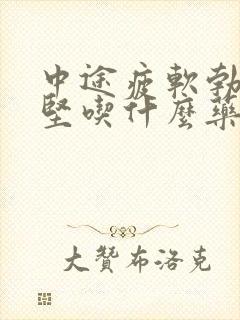 中途疲軟勃
堅喫什麼藥
大贊布洛克